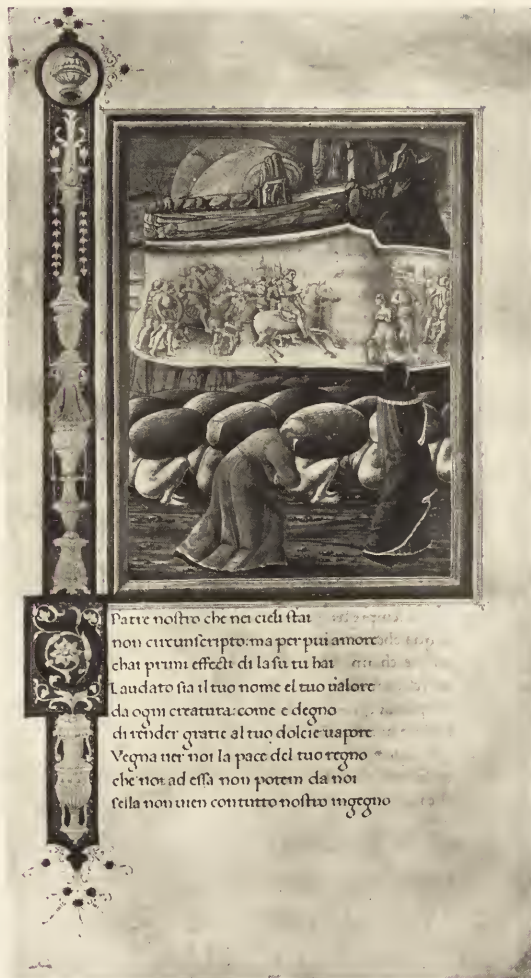 Patre nostro che nei cieli stai
non circunscripto: ma per piu amore
chai primi effecti di la su tu hai
Laudato sia il tuo nome el tuo ualore
da ogni creatura: come e degno
di render gratie al tuo dolcie uapore
Vegna uer noi la pace del tuo regno
che noi ad essa non potem da noi
sella non uien con tutto nostro ingegno